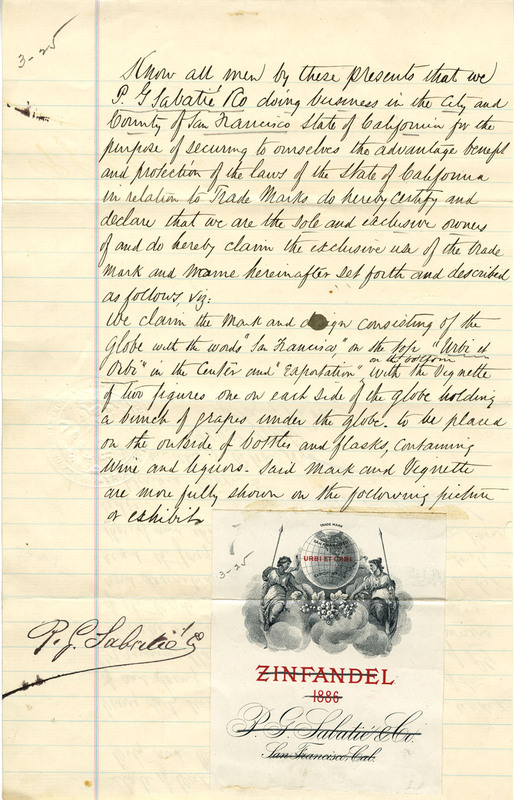 3-25
Know all men by these presents that we
P. G Sabatié & Co doing business in the City and
County of San Francisco State of California for the
purpose of securing to ourselves the advantage benefit
and protection of the laws of the State of California
in relation to Trade Marks do hereby certify and
declare that we are the sole and exclusive owners
of and do hereby claim the exclusive use of the trade
mark and name hereinafter set forth and described
as follows, viz:
We claim the Mark and design consisting of the
Globe with the words "San Francisco" on the top "Urbi et
Orbi" in the Center and "Exportation" on the bottom with the Vignette
of two figures one on each side of the globe holding
a bunch of grapes under the globe. to be placed
on the outside of bottles and flasks, containing
Wine and liquors. Said Mark and Vignette
are more fully shown on the following picture
or exhibit
3-25
TRADE MARK
URBI ET ORBI
P. G. Sabatié & Co
ZINFANDEL
1886
P. G. Sabatié & Co.
San Francisco, Cal.